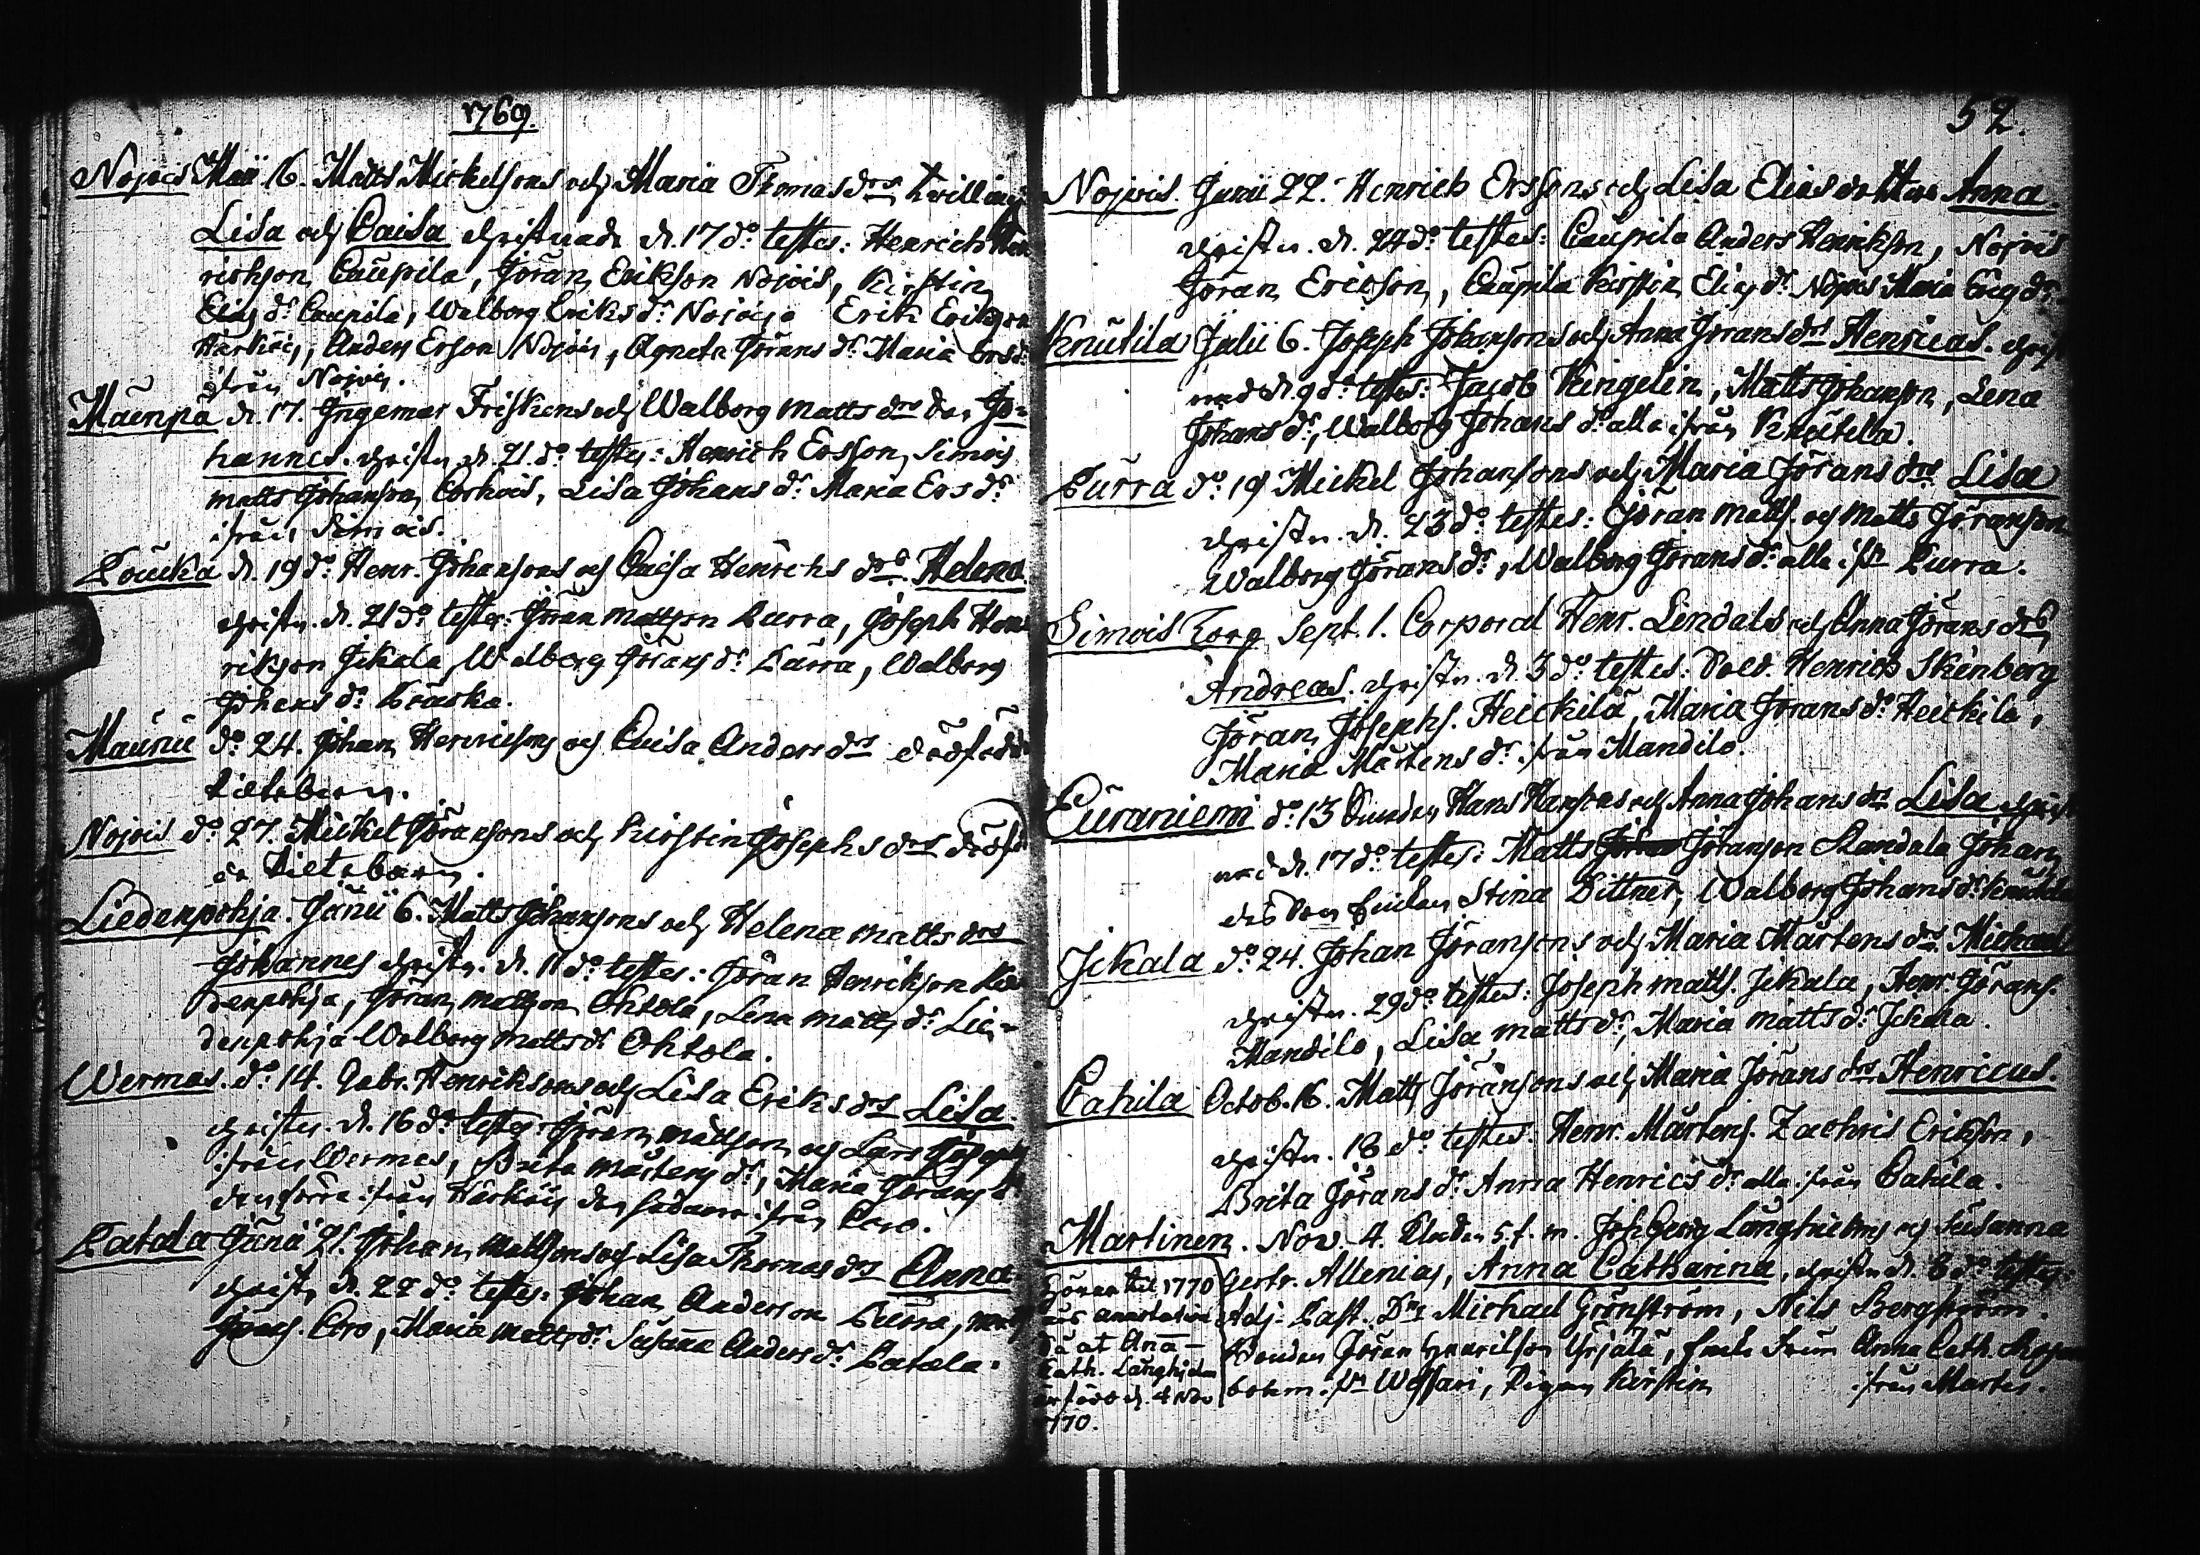 1769.
Nojois Maii 16. Matts Mickelsons och Maria Thomas drs tvilling
Lisa och Caisa christnade d. 17 do. testes: Henrich Hen
richson Caupila, Jöran Erikson Nojois, Kirstin
Elias dr. Caupila, Walborg Eriks dr. Nojois Erik Erikson
Härköi, Anders Erson Nojois, Agneta Jörans dr. Maria Ers dr.
ifrån Nojois.
Mäenpä d. 17. Ingemar Friskens och Walborg Matts drs son Jo-
hannes. christn. d. 21. do. testes: Henrich Ersson Simois
Matts Johanson Corkois, Lisa Johans dr. Maria Ers dr.
ifrån Simois.
d. 19 do. Henr. Johansons och Caisa Henrichs drs. Helena
christn. d. 21 do. testes: Jöran Mattson Purra, Joseph Hen
rikson Jckala Walborg Jörans dr. Purra, Walborg
Johans dr.
Maunu do. 24. Johan Henricsons och Caisa Anders drs dödfödt
Nojois do. 27. Mickel Jöransons och Kirstin Josephs drs
Liedenpohja. Junii 6. Matts Johansons och Helena Matts drs
Johannes christn. d. 11 do. testes: Jöran Henrikson Lie
denpohja, Jöran Mattson Ohtola, Lena Matts dr. Lie-
denpohja Walborg Matts dr Ohtola.
Wermas. do. 14. Gabr. Henriksons och Lisa Eriks drs Lisa.
christn. d. 16 do. testes: Jöran Mattson och Lars
ifrån Wermas, Brita Mårtens dr., Maria Jörans dr
den förra ifrån Härköi den sednare ifrån Caro.
Patala Junii 21. Johan Mattsons och Lisa Thomas drs Anna
christn. d. 22 do. testes: Johan Anderson Purra, Matts
Jörans. Caro, Maria Matts dr. Susanna Anders dr. Patala.
52.
Nojois. Junii 22. Henrich Erssons och Lisa Elias dotters Anna.
christn. d. 24 do. testes: Caupila Anders Henrikson, Nojois
Jöran Ericson, Caupila Kirstin Elias dr. Nojois Maria Erics dr.
Knutila Julii 6. Joseph Johansons och Anna Jörans drs Henricus. christ
nad d. 9 do. testes: Jacob Kingelin, Matts Johanson, Lena
Johans dr., Walborg Johans dr. alla ifrån Knutila.
Purra do. 19 Mickel Johansons och Maria Jörans drs Lisa
christn. d. 23 do. testes: Jöran Matts. och Matts Jöranson
Walborg Jörans dr., Walborg Jörans dr. alla ifrn Purra.
Simois Torp Sept. 1. Corporal Henr. Lindals och Anna Jörans drs
Andreas. christn. d. 3 do. testes: Sold. Henrich Skönberg
Jöran Josephs. Heickilä, Maria Jörans dr. Heickilä,
Maria Mårtens dr. ifrån Mandilo.
Euraniemi do. 13 Hans Hansons och Anna Johans drs Lisa christ
nad d. 17 do. testes: Matts Jöranson Johan
Stina Dittner, Walborg Johans dr. Knutila
Jckala do. 24. Johan Jöransons och Maria Mårtens drs. Michael
christn. 29 do. testes: Joseph Matts. Jckala, Henr. Jörans.
Mandilo, Lisa Matts dr., Maria Matts dr. Jckala.
Cahila Octob. 16. Matts Jöransons och Maria Jörans drs Henricus.
christn. 18 do. testes: Henr. Mårtens. Zachris Erikson,
Brita Jörans dr. Anna Henrics dr. alla ifrån Cahila.
Martinen. Nov. 4. Klockan 5. f. m. Joh. Georg Långhielms och Susanna
Gertr. Allenias, Anna Catharina, christn d. 8 do. testes:
Adj. Past. Dns Michael Grönström, Nils Bergström.
Bonden Jöran Yrjälä, Anna Cath.
Kirstin ifrån Marti.
hörer til 1770
års annotation
då at Anna
Cath. Långhielm
är född d. 4 Nov
1770.